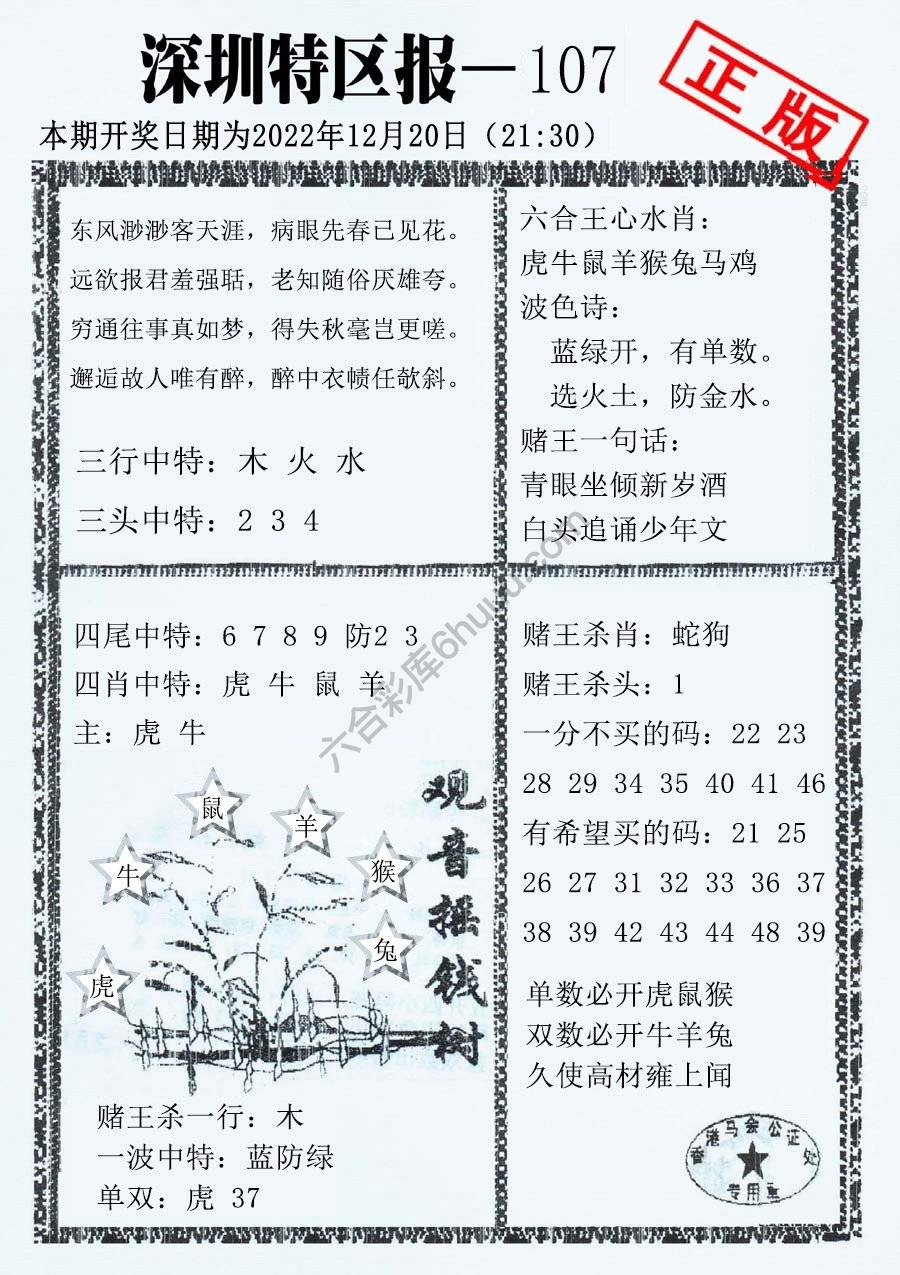 深圳特区报—107
正版
本期开奖日期为2022年12月20日（21:30）
东风渺渺客天涯，病眼先春已见花。
远欲报君羞强聒，老知随俗厌雄夸。
穷通往事真如梦，得失秋毫岂更嗟。
邂逅故人唯有醉，醉中衣帻任欹斜。
三行中特：木 火 水
三头中特：2 3 4
六合王心水肖：
虎牛鼠羊猴兔马鸡
波色诗：
蓝绿开，有单数。
选火土，防金水。
赌王一句话：
青眼坐倾新岁酒
白头追诵少年文
四尾中特：6 7 8 9 防2 3
四肖中特：虎 牛 鼠 羊
主：虎 牛
鼠
羊
牛
猴
兔
虎
观音摇钱树
赌王杀一行：木
一波中特：蓝防绿
单双：虎 37
赌王杀肖：蛇狗
赌王杀头：1
一分不买的码：22 23
28 29 34 35 40 41 46
有希望买的码：21 25
26 27 31 32 33 36 37
38 39 42 43 44 48 39
单数必开虎鼠猴
双数必开牛羊兔
久使高材雍上闻
香港马会公证处
专用章
六合彩库6huuu.com